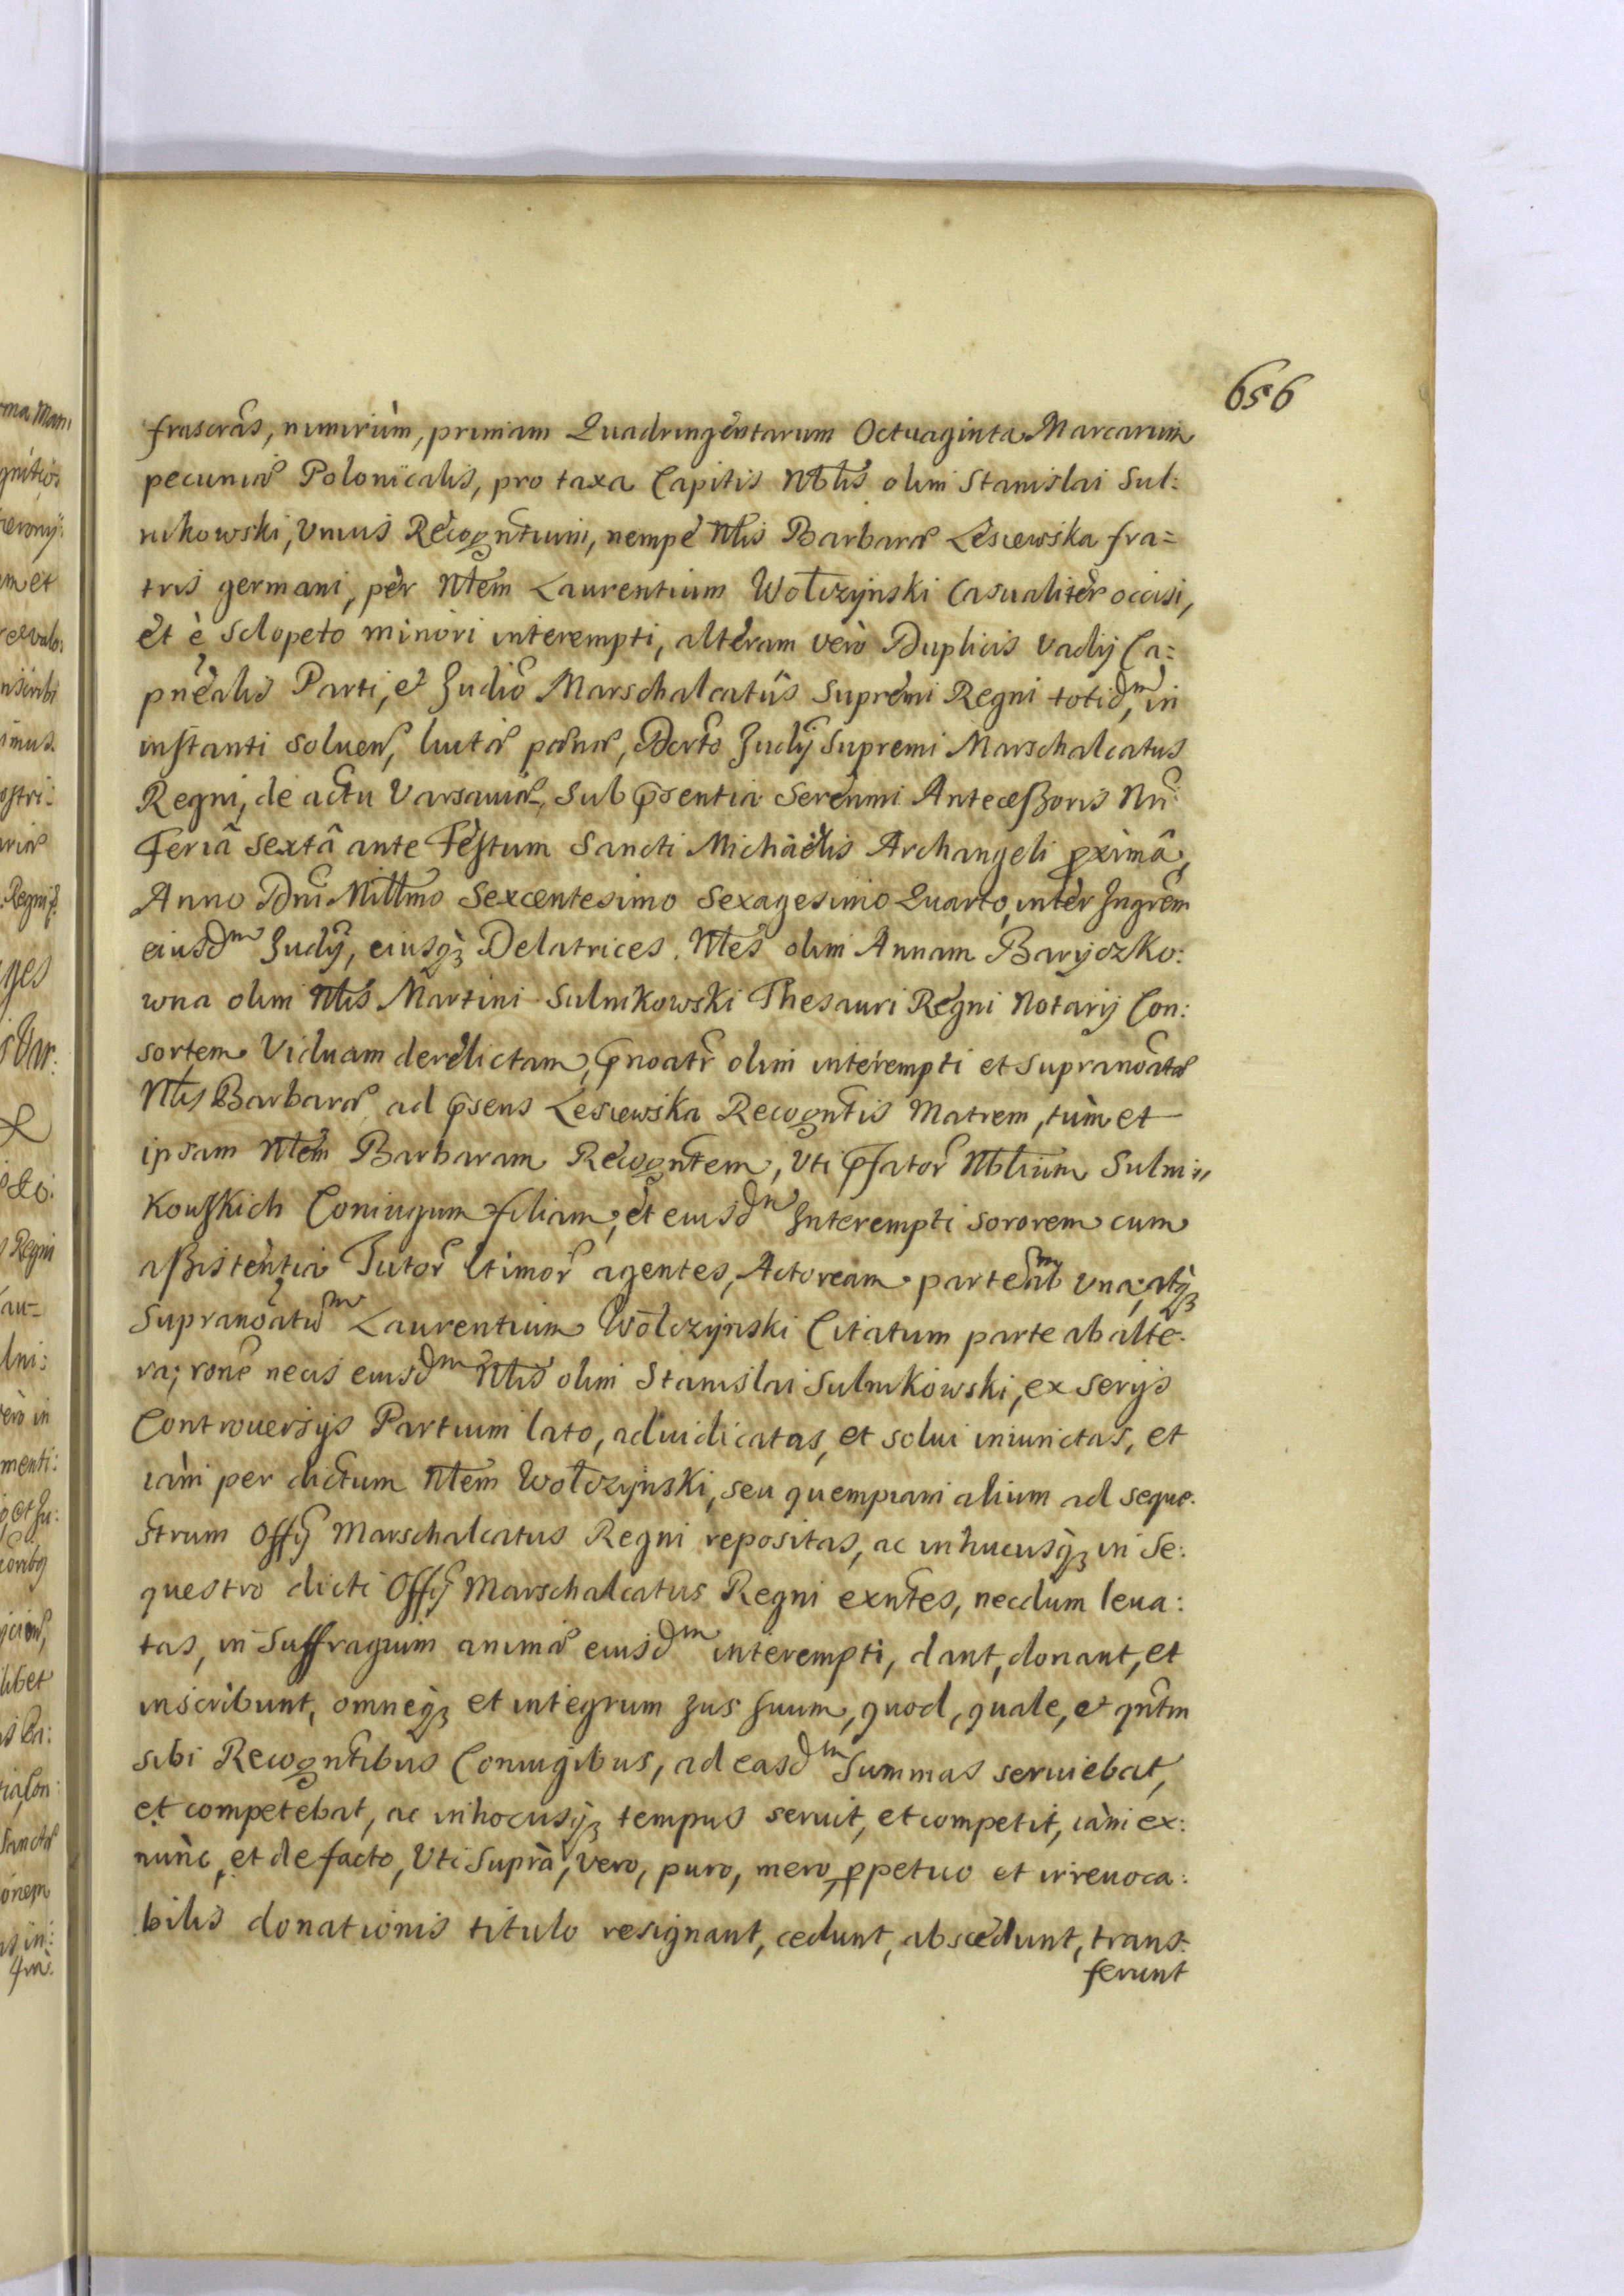 656
frascras, nimirùm, primam Quadringentarum Octuaginta Marcarum
pecuniæ Polonicalis, pro taxa Capitis Nblis olim Stanislai Sul:
nikowski, Unius Recogntium, nempe Nblis Barbaræ Lesiewska fra=
tris germani, pèr Nblem Laurentium Wołczynski Casualiter occisi,
et è Sclopeto minori interempti, alteram verò Duplicis Vadij Ca=
pnealis Parti, et Judio Marschalcatûs Supremi Regni totidm, in
instanti soluen, luitæ pænæ, Dcrto Judij Supremi Marschalcatus
Regni, de actu Varsaviæ, sub psentia Serenmi Antecessoris Nri
Feriâ Sextâ ante Festum Sancti Michäelis Archangeli pximâ,
Anno Dni Millmo Sexcentesimo Sexagesimo Quarto, inter Ingrem
eiusdm Judij, eiusq3 Delatrices. Nbles olim Annam Baryczko:
wna olim Nblis Martini Sulnikowski Thesauri Regni Notarij Con:
sortem Viduam derelictam, pnoati olim interempti et supranoatæ
Nblis Barbaræ ad psens Lesiewska Recogntis Matrem, tùm et
ipsam Nblem Barbaram Recogntem, Uti pfator Nblium Sulni"
kowskich Coniugum filiam, et eiusdm Interempti sororem cum
assistentia Tutor ltimor agentes, Actoream partem ab Una, atq3
Supranoatum Laurentium Wołczynski Citatum parte ab alte-
ra; rone necis eiusdm Nblis olim Stanislai Sulnikowski, ex serijs
Controversijs Partium lato, adiudicatas, et solui iniunctas, et
iàm per dictum Nblem Wołczynski, seu quempiam alium ad seque-
strum Offij Marschalcatus Regni repositas, ac inhucusq3 in Se:
questro dicti Offij Marschalcatus Regni exntes, necdum leua:
tas, in Suffragium animæ eiusdm interempti, dant, donant, et
inscribunt, omneq3 et integrum Jus suum, quod, quale, et qntm
sibi Recogntibus Coniugibus, ad easdm Summas seruiebat,
et competebat, ac inhocusq3 tempus seruit, et competit, iàm ex:
nùnc, et de facto, Uti Suprà, vero, puro, mero, ppetuo et irreuoca:
bilis donationis titulo resignant, cedunt, abscedunt, trans-
ferunt